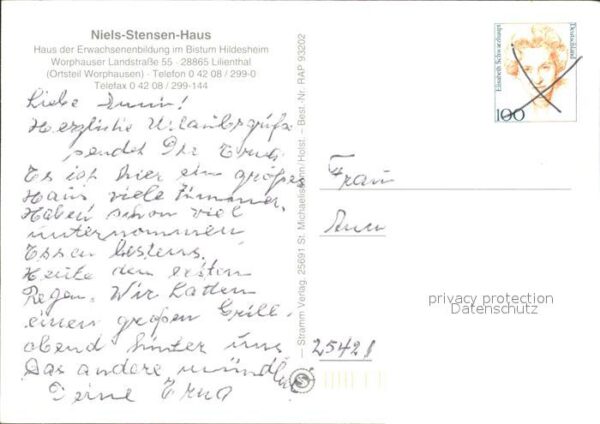 Niels-Stensen-Haus
Haus der Erwachsenenbildung im Bistum Hildesheim
Worphauser Landstraße 55 · 28865 Lilienthal
(Ortsteil Worphausen) · Telefon 0 42 08 / 299-0
Telefax 0 42 08 / 299-144
Liebe
Herzliche Urlaubsgrüße
sendet Dir Erna
Es ist hier ein großes
Haus viele Zimmer.
Haben schon viel
unternommen
Essen bestens.
Heute den ersten
Regen. Wir hatten
einen großen Grill-
abend hinter uns
Das andere mündlich
Deine Erna
Stramm Verlag, 25691 St. Michaelisdonn/Holst. – Best.-Nr. RAP 93202
Elisabeth Schwarzhaupt
Deutschland
100
Frau
privacy protection
Datenschutz
25421